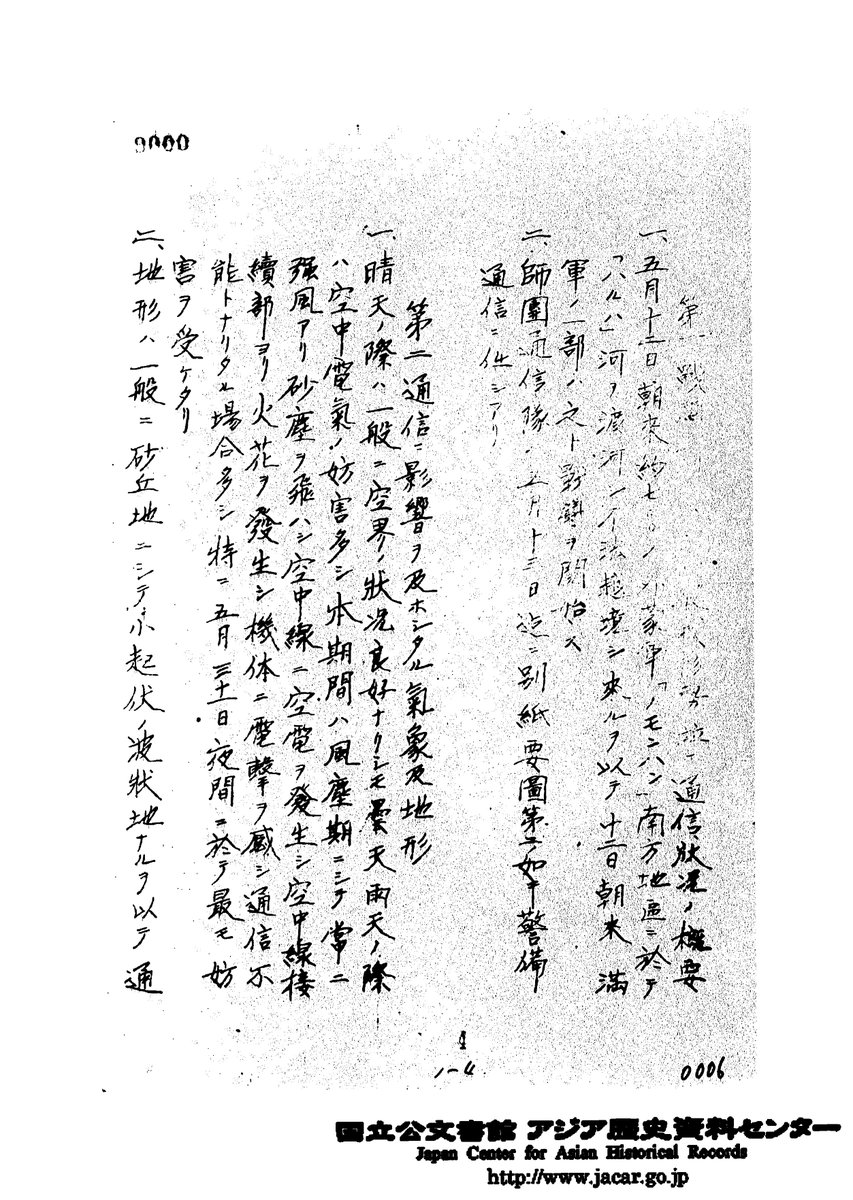 9000
第一 戰 通信狀况ノ概要
一、五月十二日朝來約七〇〇ノ外蒙軍「ノモンハン」南方地區ニ於テ
「ハルハ」河ヲ渡河シ不法越境シ來ルヲ以テ十二日朝來滿
軍ノ一部ハ之ト戰鬪ヲ開始ス
二、師團通信隊ハ五月十三日迄ニ別紙要圖第二如キ警備
通信ニ任シアリ
第二 通信ニ影響ヲ及ホシタル氣象及地形
一、晴天ノ際ハ一般ニ空界ノ狀况良好ナリシモ曇天雨天ノ際
ハ空中電氣ノ妨害多シ本期間ハ風塵期ニシテ常ニ
强風アリ砂塵ヲ飛ハシ空中線ニ空電ヲ發生シ空中線接
續部ヨリ火花ヲ發生シ機体ニ電擊ヲ感シ通信不
能トナリタル場合多シ特ニ五月三十一日夜間ニ於テ最モ妨
害ヲ受ケタリ
二、地形ハ一般ニ砂丘地ニシテ小起伏ノ波狀地ナルヲ以テ通
4
1-4
0006
国立公文書館 アジア歴史資料センター
Japan Center for Asian Historical Records
http://www.jacar.go.jp